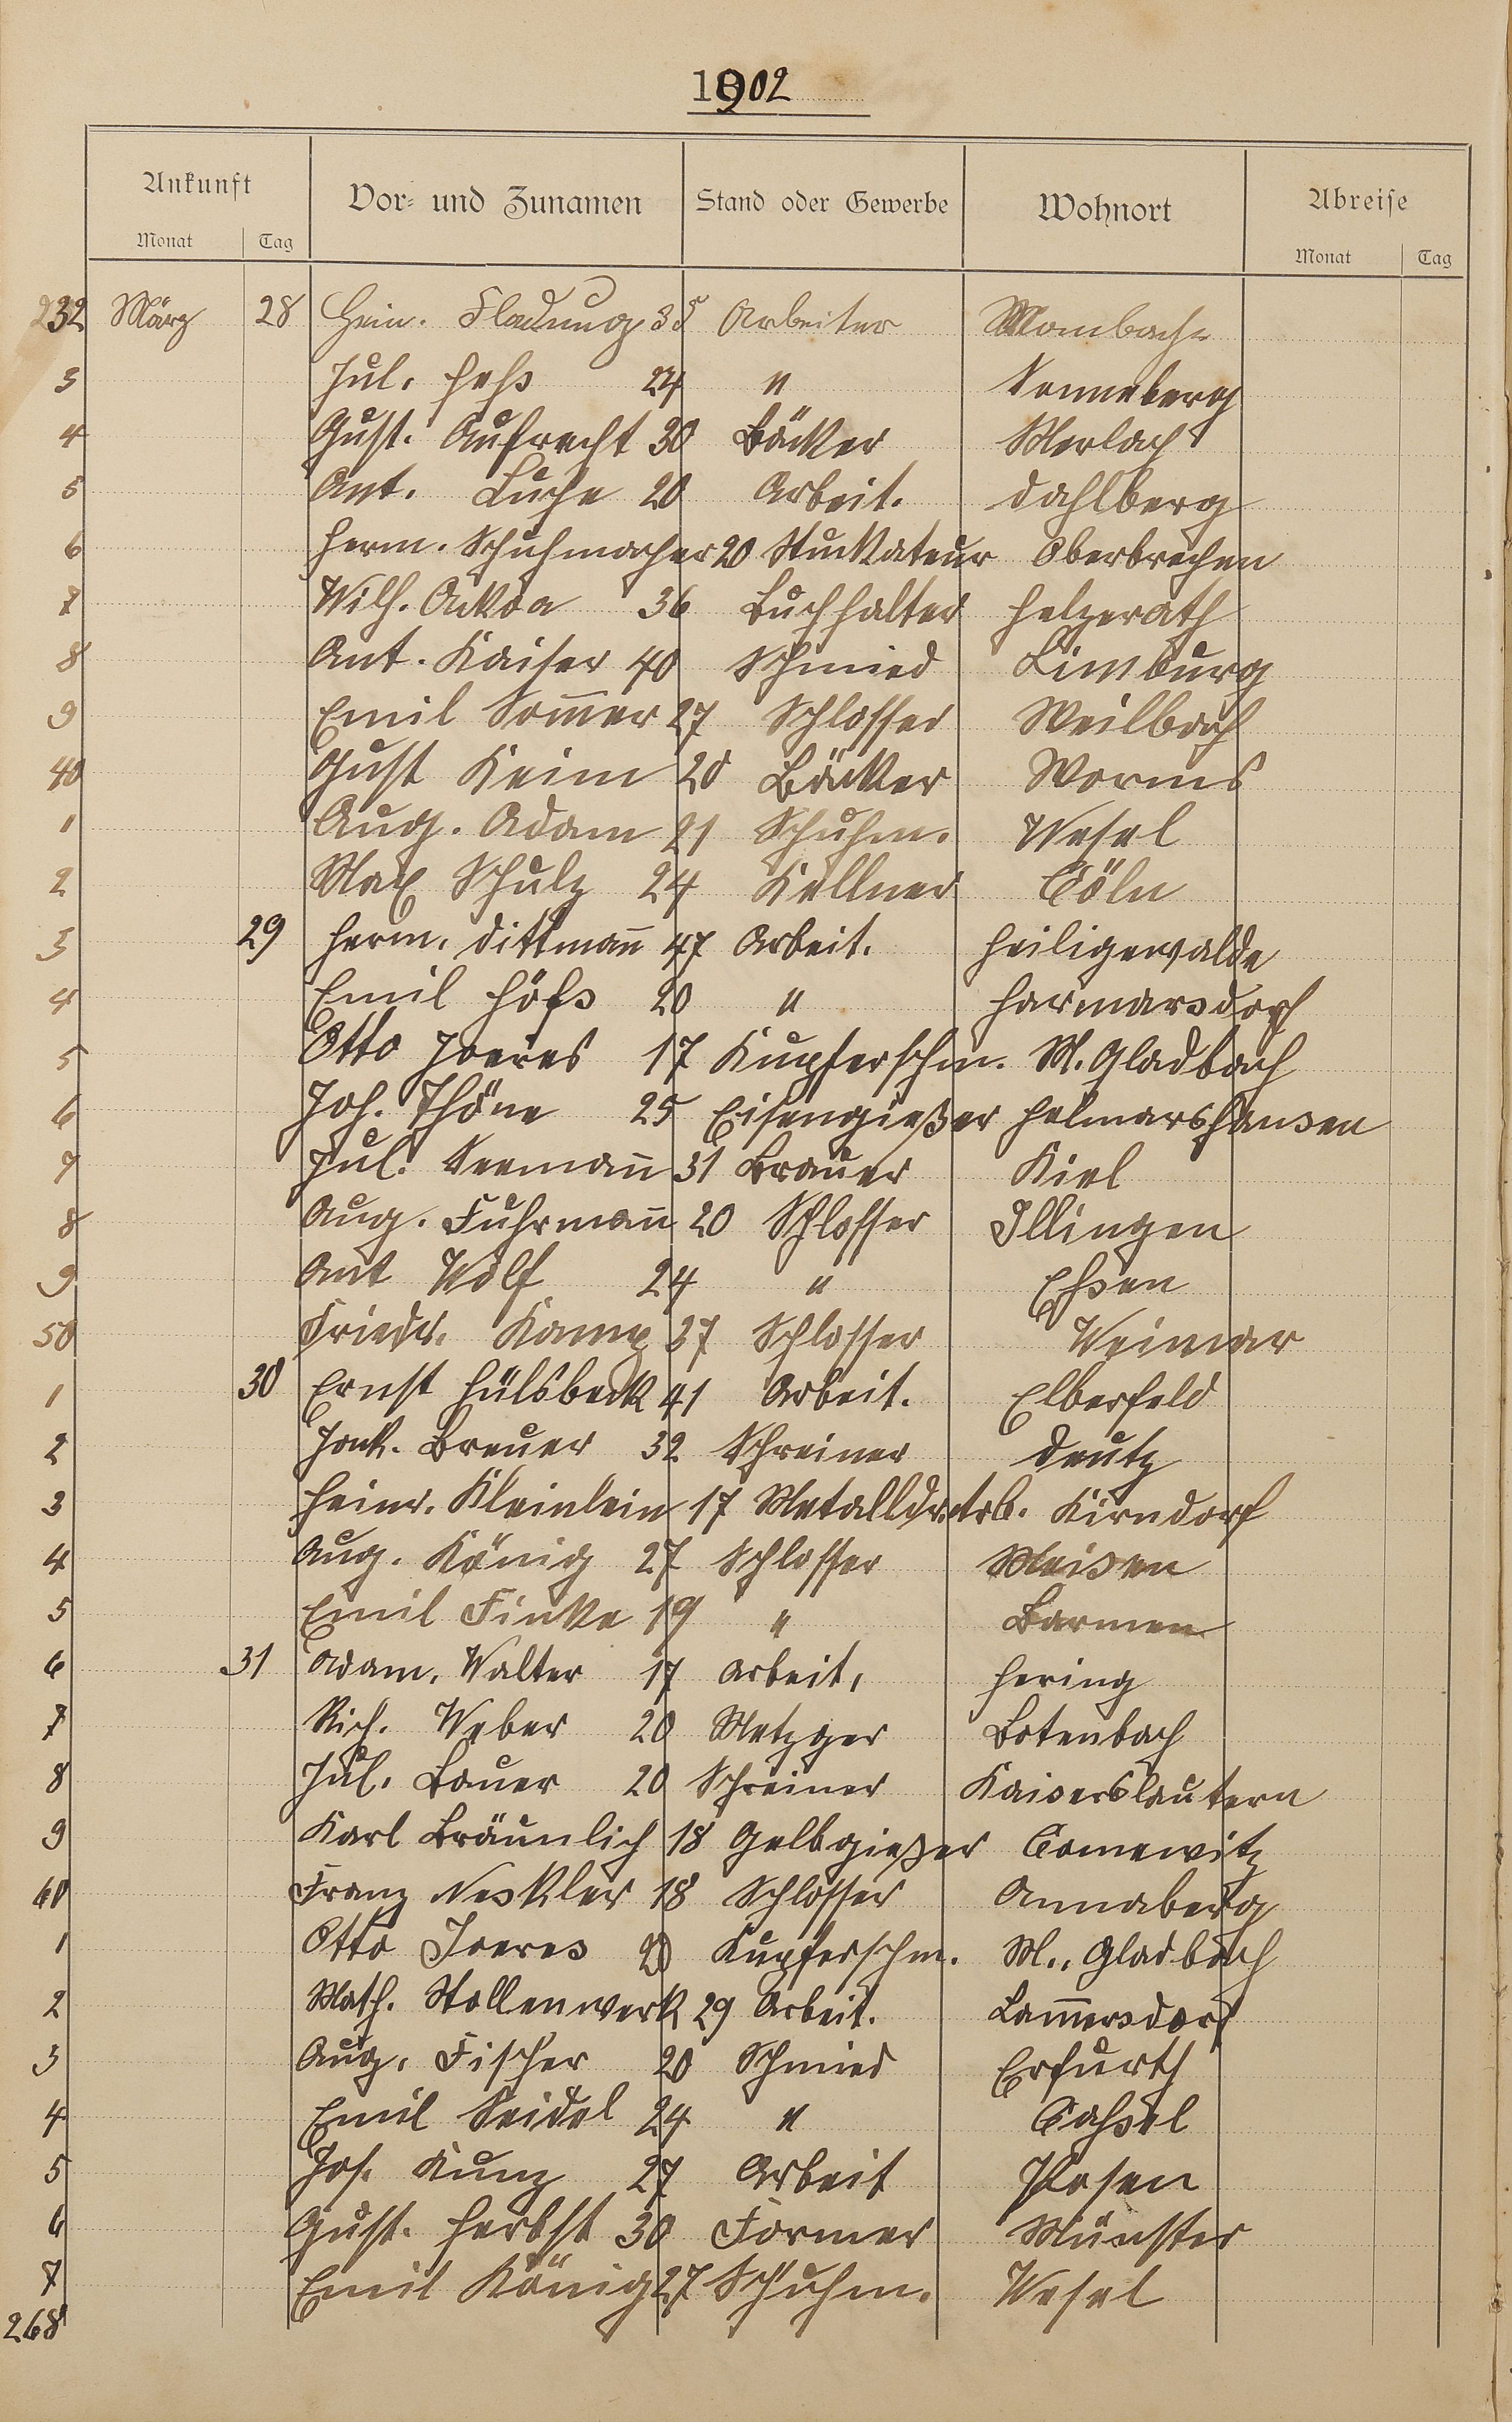 1902
Ankunft Vor- und Zunamen Stand oder Gewerbe Wohnort Abreise
Monat Tag Monat Tag
232 März 28 Hein. Fladung 35 Arbeiter Mombach
3 Jul. Heß 24 " Sonneberg
4 Gust. Aufrecht 30 Bäcker Merlach
5 Ant. Luche 20 Arbeit. Dahlberg
6 Herm. Schuhmacher 20 Stuckateur Oberbrechen
7 Wilh. 36 Buchhalter Helzerath
8 Ant. Kaiser 40 Schmied Limburg
9 Emil Som̅er 27 Schlosser Weilbach
40 Gust Keim 20 Bäcker Worms
1 Aug. Adam 21 Schuhm. Wesel
2 Max Schulz 24 Kellner Cöln
3 29 Herm. Dittman̅ 47 Arbeit. Heiligewalde
4 Emil Höfs 20 " Harmarsdorf
5 Otto Joeres 17 Kupferschm. M. Gladbach
6 Joh. Thöne 25 Eisengießer Helmarshausen
7 Jul. Seeman̅ 31 Brauer Kiel
8 Aug. Fuhrman̅ 20 Schlosser Illingen
9 Ant Wolf 24 " Eßen
50 Friedr. Kamp 37 Schlosser Weimar
1 30 Ernst Hülsbeck 41 Arbeit. Elberfeld
2 Jak. Breuer 32 Schreiner Deutz
3 Heinr. Kleinlein 17 Kirndorf
4 Aug. König 27 Schlosser Meisen
5 Emil Finke 19 " Barmen
6 31 Adam. Walter 17 Arbeit. Hering
7 Rich. Weber 20 Metzger Botenbach
8 Jul. Bauer 20 Schreiner Kaiserslautern
9 Karl Bräunlich 18 Gelbgießer Comewitz
60 Franz Neskler 18 Schlosser Annaberg
1 Otto Joeres 20 Kupferschm. M. Gladbach
2 Math. Stollenwerk 29 Arbeit. Lam̅ersdorf
3 Aug. Fischer 20 Schmied Erfurth
4 Emil Seidel 24 " Caßel
5 Jos. Kunz 27 Arbeit Posen
6 Gust. Herbst 30 Former Münster
7 Emil König 27 Schuhm. Wesel
268